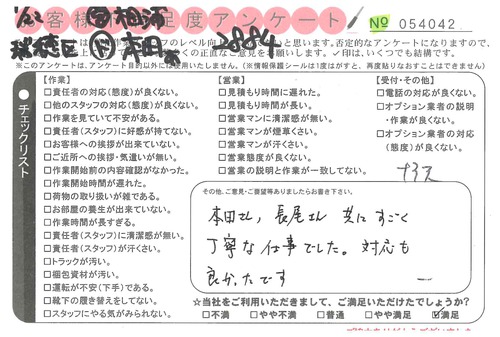 お客様満足度アンケート
№ 054042
瑞穂区
※このアンケートは、アンケート目的以外には使用いたしません。(情報保護シールは1度はがすと、再度貼りなおすことはできません)
チェックリスト
【作業】
□責任者の対応(態度)が良くない。
□他のスタッフの対応(態度)が良くない。
□作業を見ていて不安がある。
□責任者(スタッフ)に好感が持てない。
□お客様への挨拶が出来ていない。
□ご近所への挨拶・気遣いが無い。
□作業開始前の内容確認がなかった。
□作業開始時間が遅れた。
□荷物の取り扱いが雑である。
□お部屋の養生が出来ていない。
□作業時間が長すぎる。
□責任者(スタッフ)に清潔感が無い。
□責任者(スタッフ)が汗くさい。
□トラックが汚い。
□梱包資材が汚い。
□運転が不安(下手)である。
□靴下の履き替えをしてない。
□スタッフにやる気がみられない。
【営業】
□見積もり時間に遅れた。
□見積もり時間が長い。
□営業マンに清潔感が無い。
□営業マンが煙草くさい。
□営業マンが汗くさい。
□営業態度が良くない。
□営業の説明と作業が一致してない。
【受付・その他】
□電話の対応が良くない。
□オプション業者の説明・作業が良くない。
□オプション業者の対応(態度)が良くない。
その他、ご意見・ご要望等ありましたらお書き下さい。
本田さん、長尾さん 共にすごく
丁寧な仕事でした。対応も
良かったです
☆当社をご利用いただきまして、ご満足いただけたでしょうか?
□不満 □やや不満 □普通 □やや満足 ☑満足